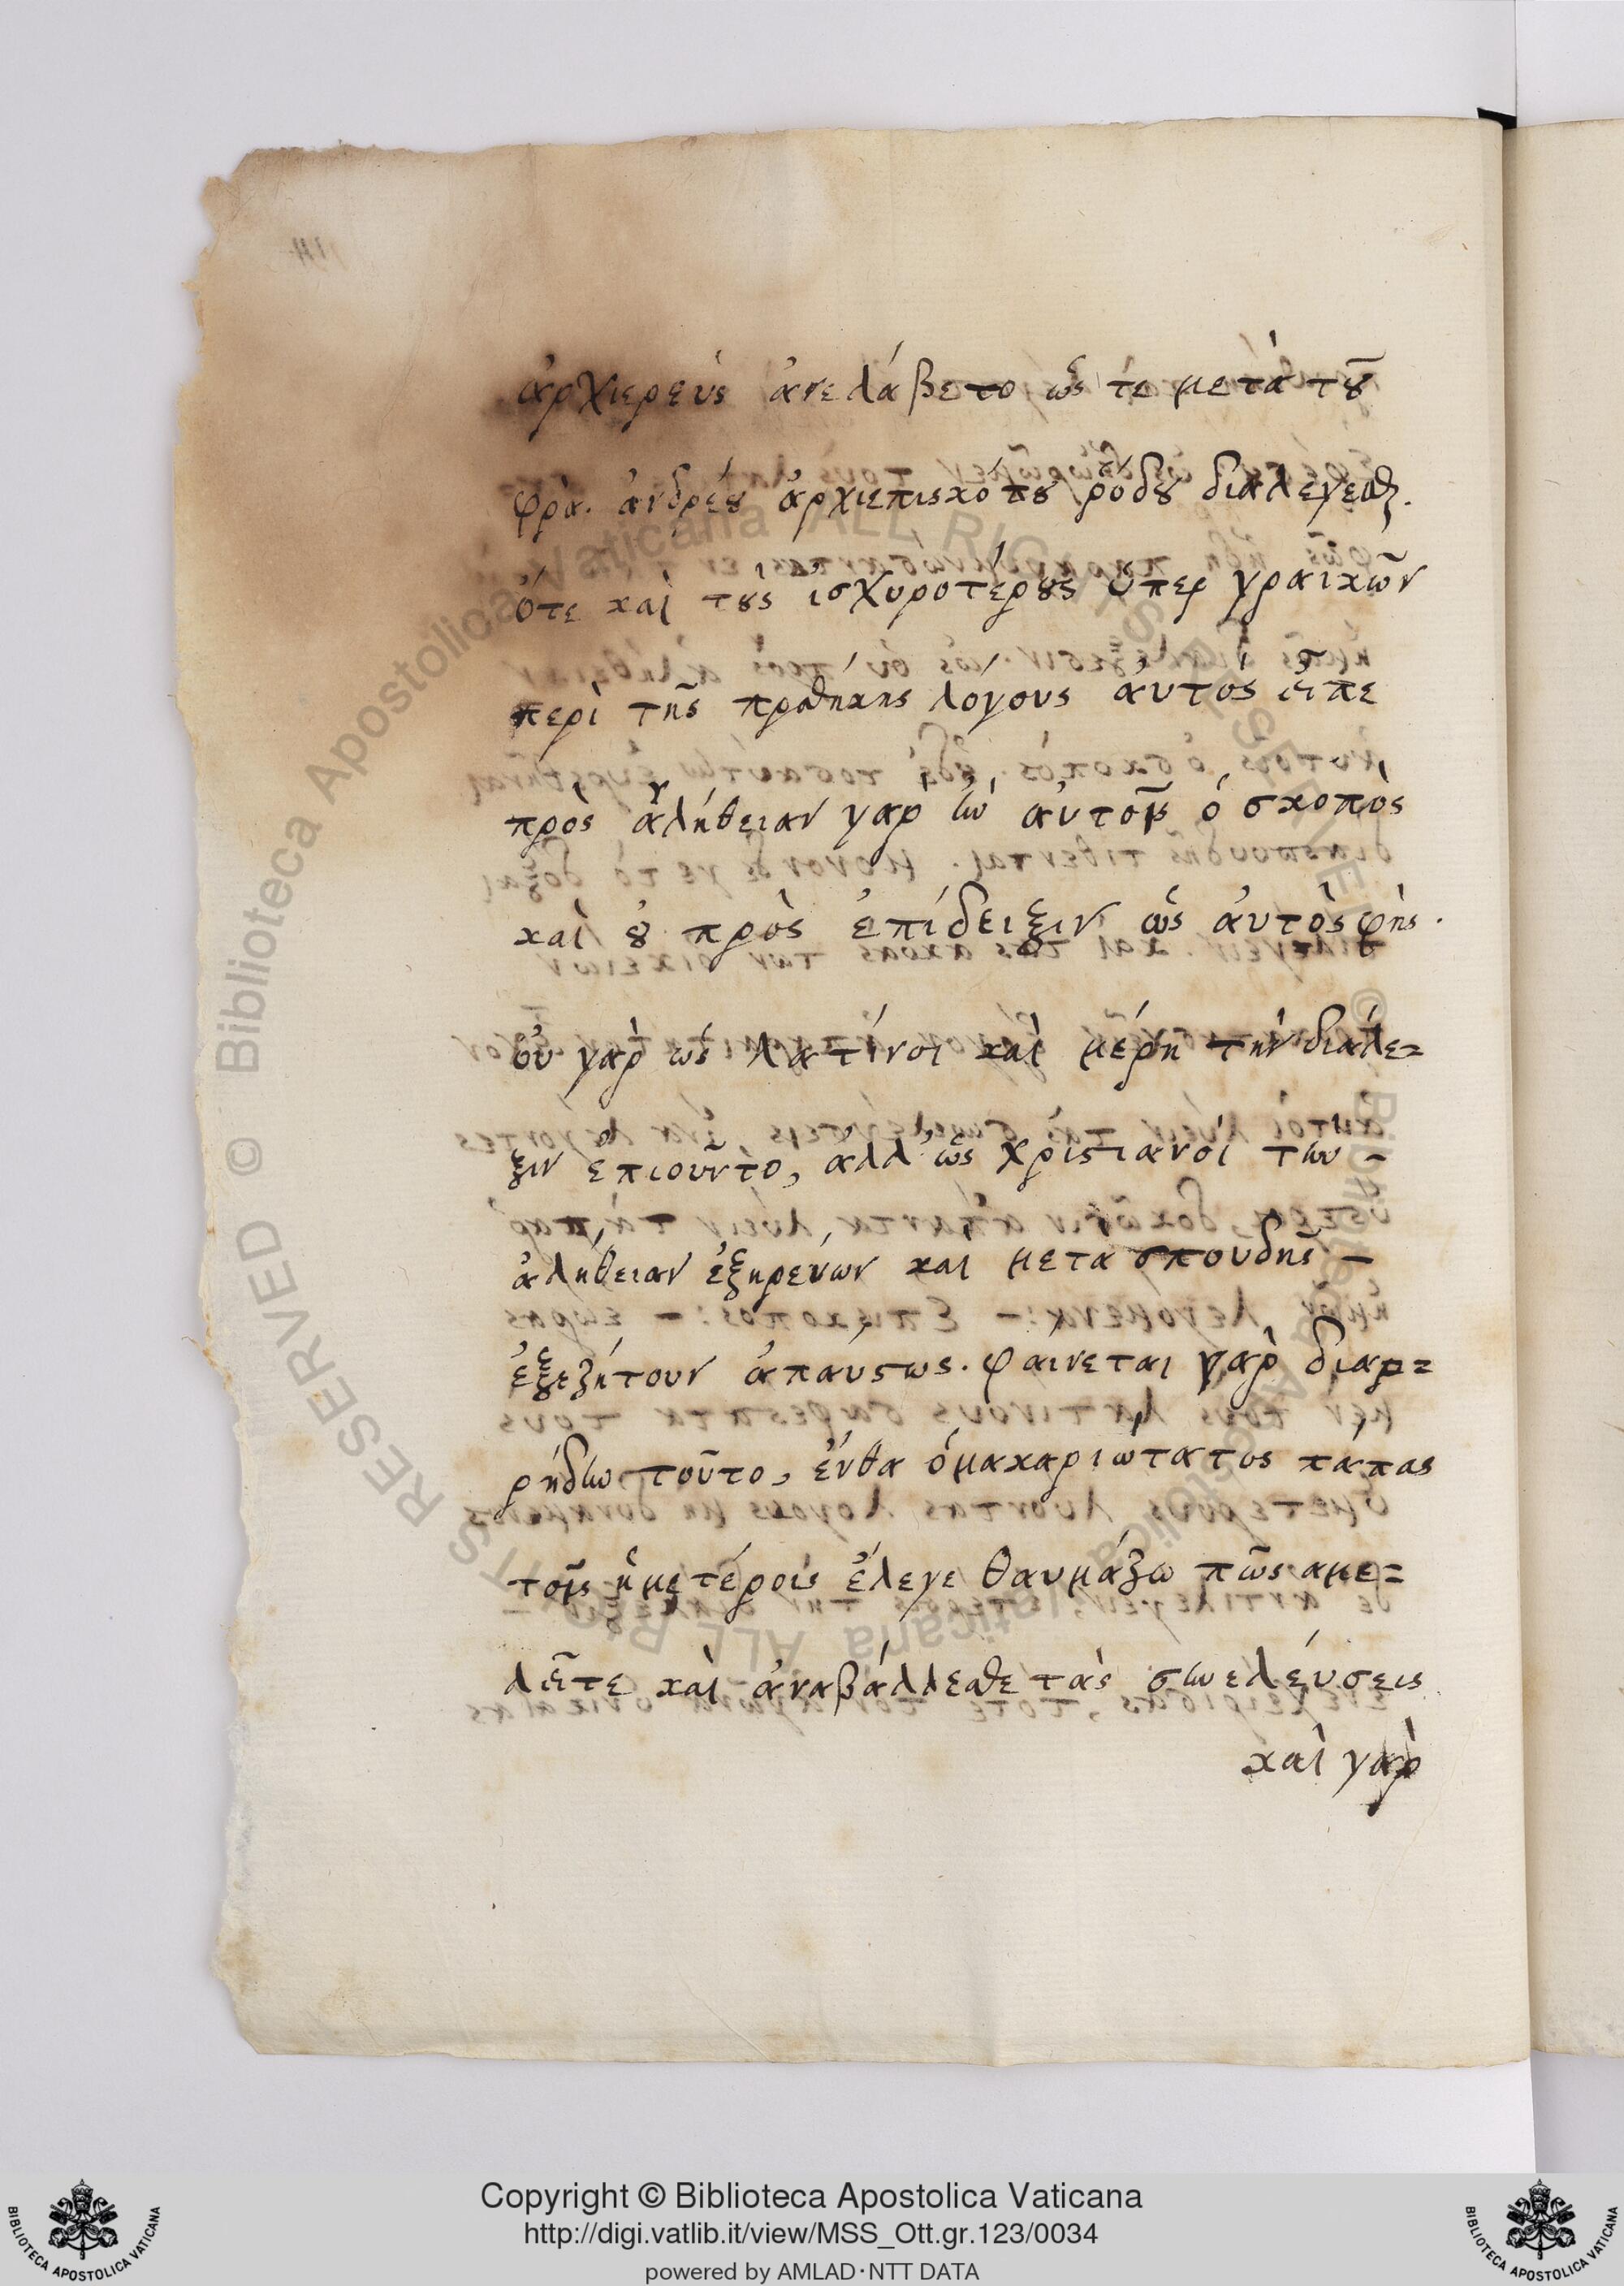 ἀρχιερεὺς ἀπελάβετο ὥς τε μετὰ τοῦ
φρὰ. ἀνδρέου ἀρχιεπισκόπου ῥόδου διαλέγεσθαι.
ὅτε καὶ τοὺς ἰσχυροτέρους ὑπερ γραικῶν
περὶ τῆς προσθήκης λόγους ἀυτὸς εἶπε
πρὸς ἀλήθειαν γαρ ἦν ἀυτοῖς ὁ σκοπὸς
καὶ οὐ πρὸς ἐπίδειξιν ὡς ἀυτὸς φῆς.
οὐ γαρ ὡς λατίνοι καὶ μέρη τὴν διάλε=
ξιν ἐπιοῦντο, ἀλλ' ὡς χριστιανοὶ τὴν -
ἀλήθειαν ἐξηρεύνων καὶ μετὰ σπουδῆς -
ἐξεζήτουν ἀπαύστως. φαίνεται γαρ διαρ=
ρήδην τοῦτο, ἔνθα ὁ μακαριώτατος πάπας
τοῖς ἡμετέροις ἔλεγε θαυμάζω πῶς αμε=
λεῖτε καὶ ἀναβάλλεσθε τὰς συνελέυσεις
καὶ γαρ
Copyright © Biblioteca Apostolica Vaticana
http://digi.vatlib.it/view/MSS_Ott.gr.123/0034
powered by AMLAD·NTT DATA
BIBLIOTECA APOSTOLICA VATICANA
BIBLIOTECA APOSTOLICA VATICANA